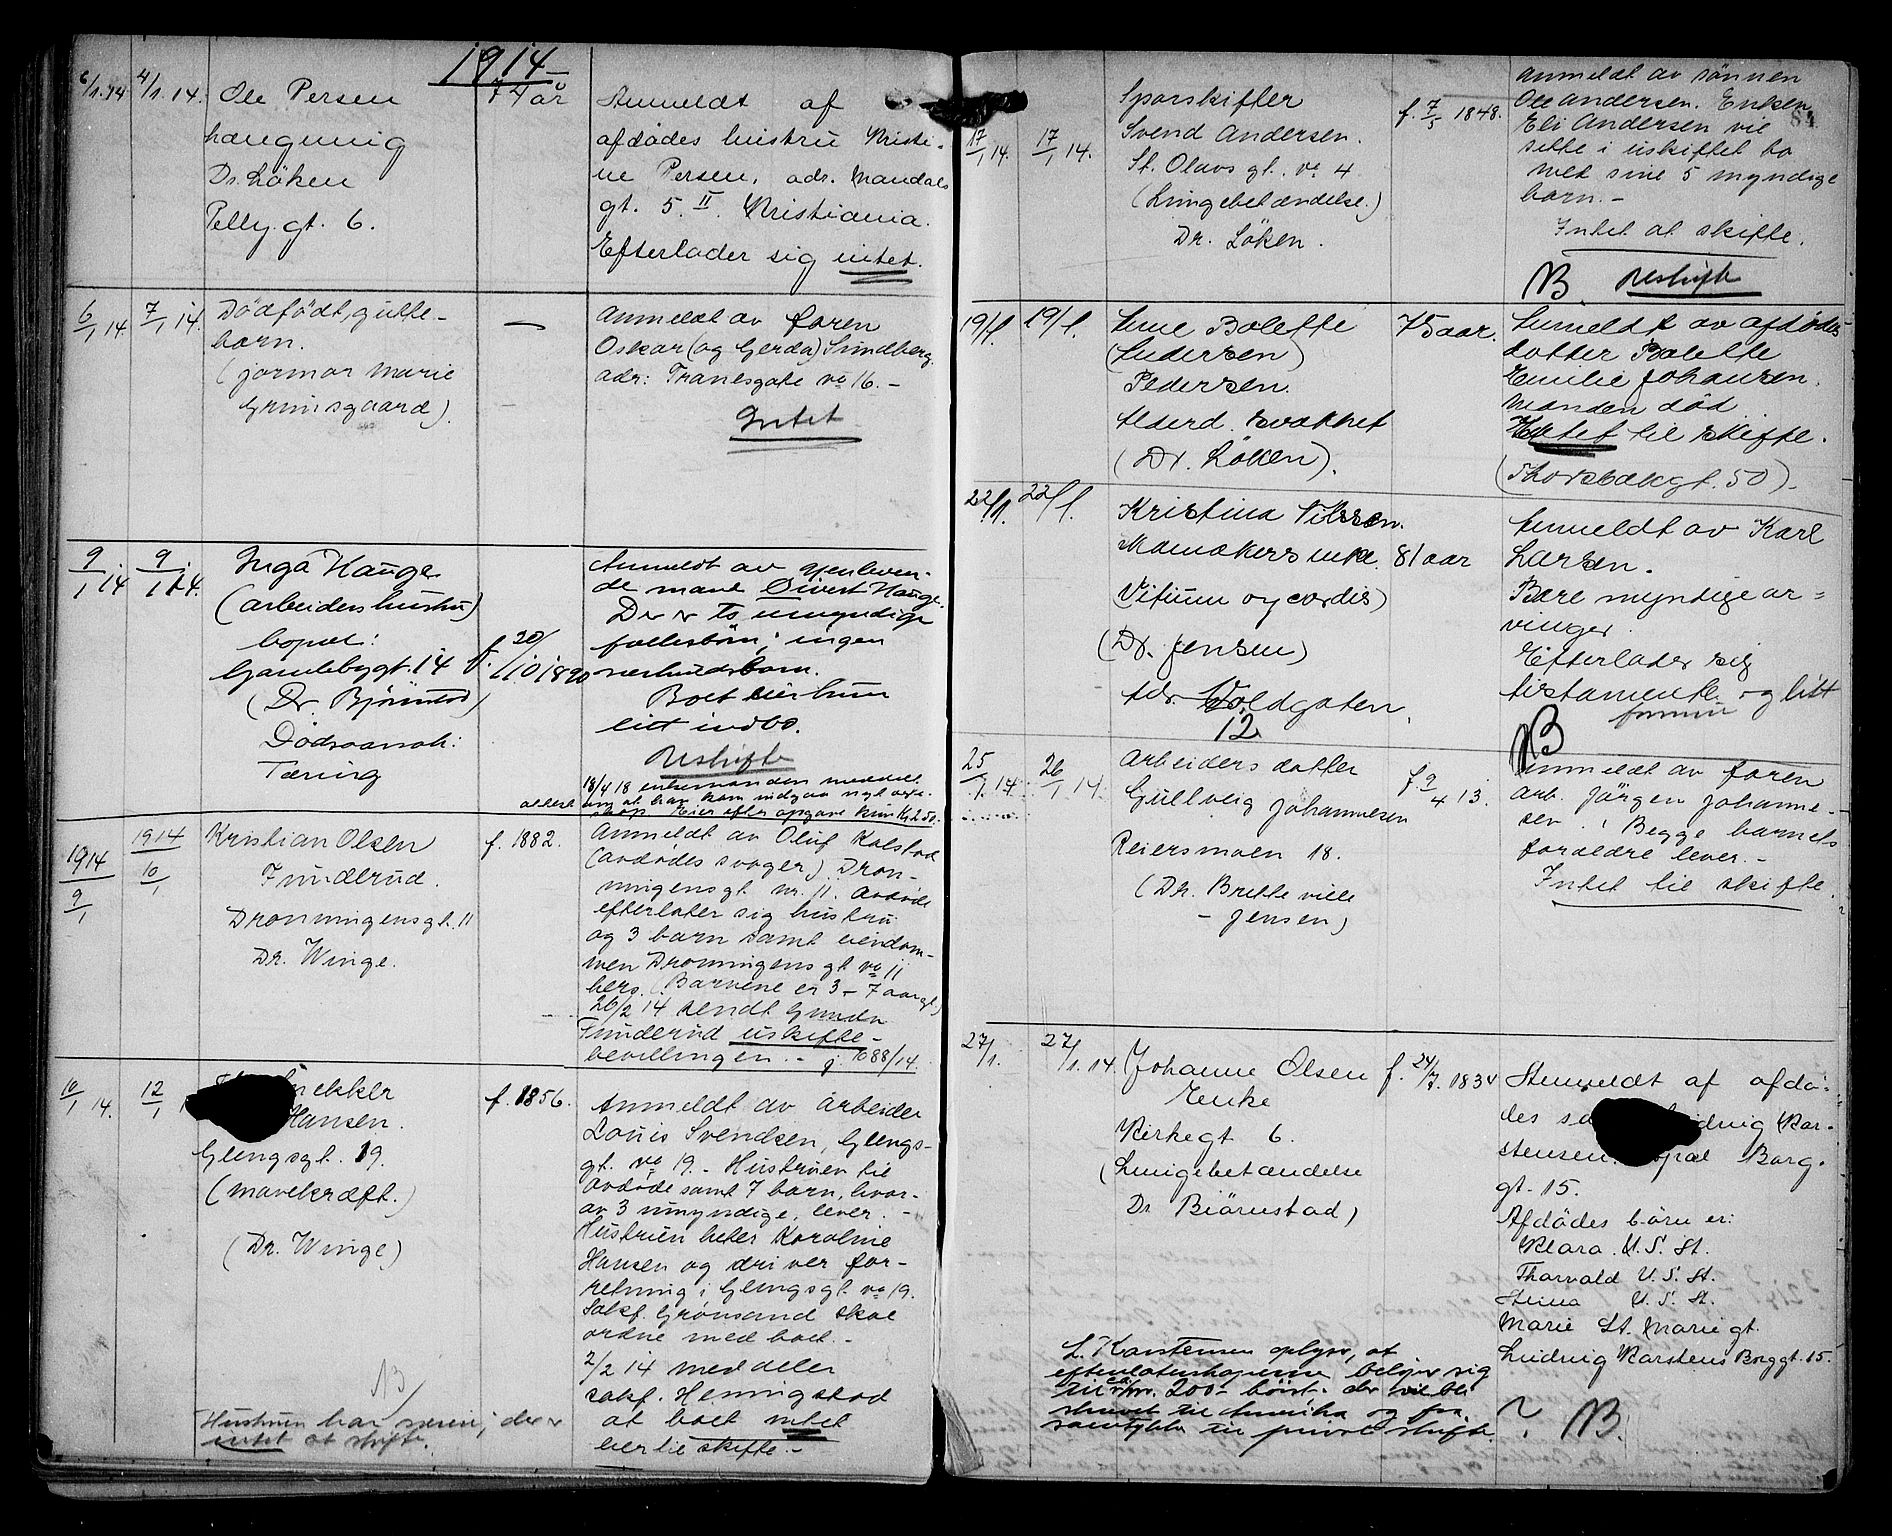 1914
6/1.14 4/1.14. Ole Persen 74 år Anmeldt af
hængning afdødes hustru Kristi-
Dr. Løken ne Persen, adr. Mandals
Pelly.gt. 6. gt. 5.II. Kristiania.
Efterlader sig intet.
6/1 14. 7/1 14. Dødfødt, gutte- — Anmeldt av faren
barn. Oskar (og Gerda) Sundberg.
(jormor Marie adr: Tranesgate No 16. –
Grimsgaard). Intet
9/1 14 9/1 14. Inga Hauge Anmeldt av gjenleven-
(arbeiders hustru) de mand Sivert Hauge.
bopæl: Der er to umyndige
Gamlebygt. 14 f. 20/10 1890 fællesbørn; ingen
(Dr. Bjørnstad) særkuldsbarn.
Dødsaarsak: Boet eier kun
Tæring litt indbo.
Uskifte
18/4 18 enkemanden meddelt
attest om at han kan indgaa nyt ægte-
skap. Eier efter opgave kun Kr 250.
1914 9/1 1914 10/1 Kristian Olsen f. 1882. Anmeldt av Oluf Kalstad
Funderud. (avdødes svoger) Dron-
Dronningensgt. 11 ningensgt nr. 11. Avdøde
Dr. Winge. efterlater sig hustru
og 3 barn samt eiendom-
men Dronningensgt No 11
hers. (Barnene er 3 – 7 aar gl.)
26/2 14 sendt Gunda
Funderud uskifte-
bevillingen. – j. 1088/14.
10/1 14. 12/1 Hansen. f. 1856. Anmeldt av arbeider
Glengsgt. 19. Louis Svendsen, Glengs-
(Mavekræft.) gt. No 19. – Hustruen til
(Dr. Winge) avdøde samt 7 barn, hvor-
av 3 umyndige, lever. –
Hustruen heter Karoline
Hansen og driver for-
retning i Glengsgt No 19.
Sakf. Grønsand skal
ordne med boet. –
2/2 14 meddeler
sakf. Henningstad
at boet intet
eier til skifte. –
NB
Hustruen har særeie; der er
intet at skifte.
17/1 14. 17/1 14. Sporskifter f. 7/5 1848. Anmeldt av sønnen
Svend Andersen. Ole Andersen. Enken
St. Olavs gt. No 4 Eli Andersen vil
(Lungebetændelse.) sitte i uskiftet bo
Dr. Løken. med sine 5 myndige
barn. –
Intet at skifte.
NB Uskifte
19/1. 19/1. Anne Bolette 75 aar. Anmeldt av afdødes
(Andersen) datter Bolette
Pedersen. Emilie Johansen.
Alderd. svakhet Manden død.
(Dr. Løken). Intet til skifte.
(Thorsbækgt. 50).
22/1. 22/1. Kristina Nilssen. Anmeldt av Karl
enke. 81 aar Larsen.
(Vitium og cordis) Bare myndige ar-
(Dr. Jensen) vinger.
Adr. Voldgaten. Efterlader sig
12 testamente og litt
formue
NB
25/1.14. 26/1 14. Arbeiders datter f. 9/4 13. Anmeldt av faren
Gullveig Johannesen arb. Jørgen Johanne-
Reiersmoen 18. sen. Begge barnets
(Dr. Bretteville foreldre lever. –
– Jensen) Intet til skifte.
27/1. 27/1.14. Johanne Olsen f. 24/7. 1834 Anmeldt af afdø-
Enke des Kar-
Kirkegt 6. stensen. Borg.
(Lungebetændelse gt. 15.
Dr Bjørnstad) Afdødes børn er:
Klara. U. S. St.
Thorvald U. S. St.
U. S. St.
Marie St. Mariegt.
Ludvig Karstens Borggt. 15.
L. Karstensen oplyser, at
efterlatenskaperne beløper sig
til ca. kr. 200.- høist. der vil bli
skrevet til Amerika og faa
samtykke til privat skifte.
? NB.